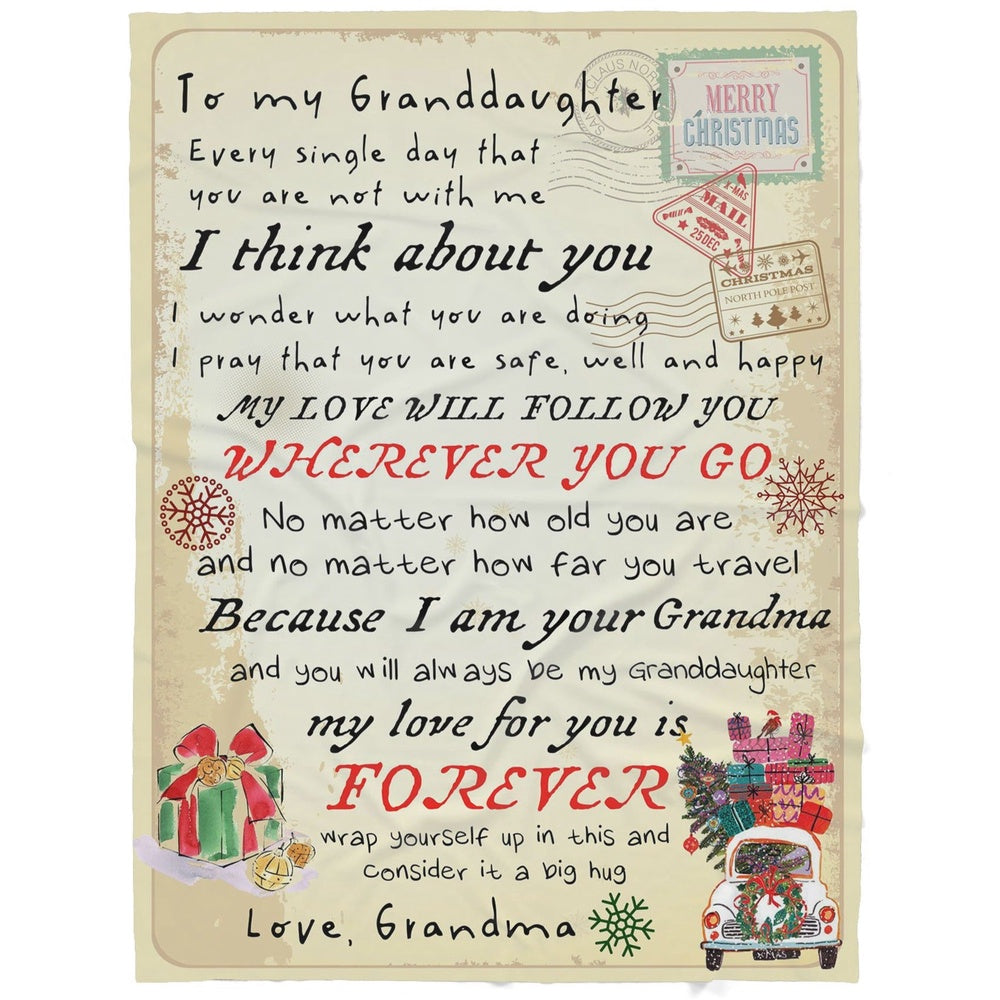 To my Granddaughter
Every single day that
you are not with me
I think about you
I wonder what you are doing
I pray that you are safe, well and happy
MY LOVE WILL FOLLOW YOU
WHEREVER YOU GO
No matter how old you are
and no matter how far you travel
Because I am your Grandma
and you will always be my Granddaughter
my love for you is
FOREVER
wrap yourself up in this and
consider it a big hug
Love, Grandma
MERRY
CHRISTMAS
X-MAS
MAIL
25DEC
CHRISTMAS
NORTH POLE POST
XMAS 1